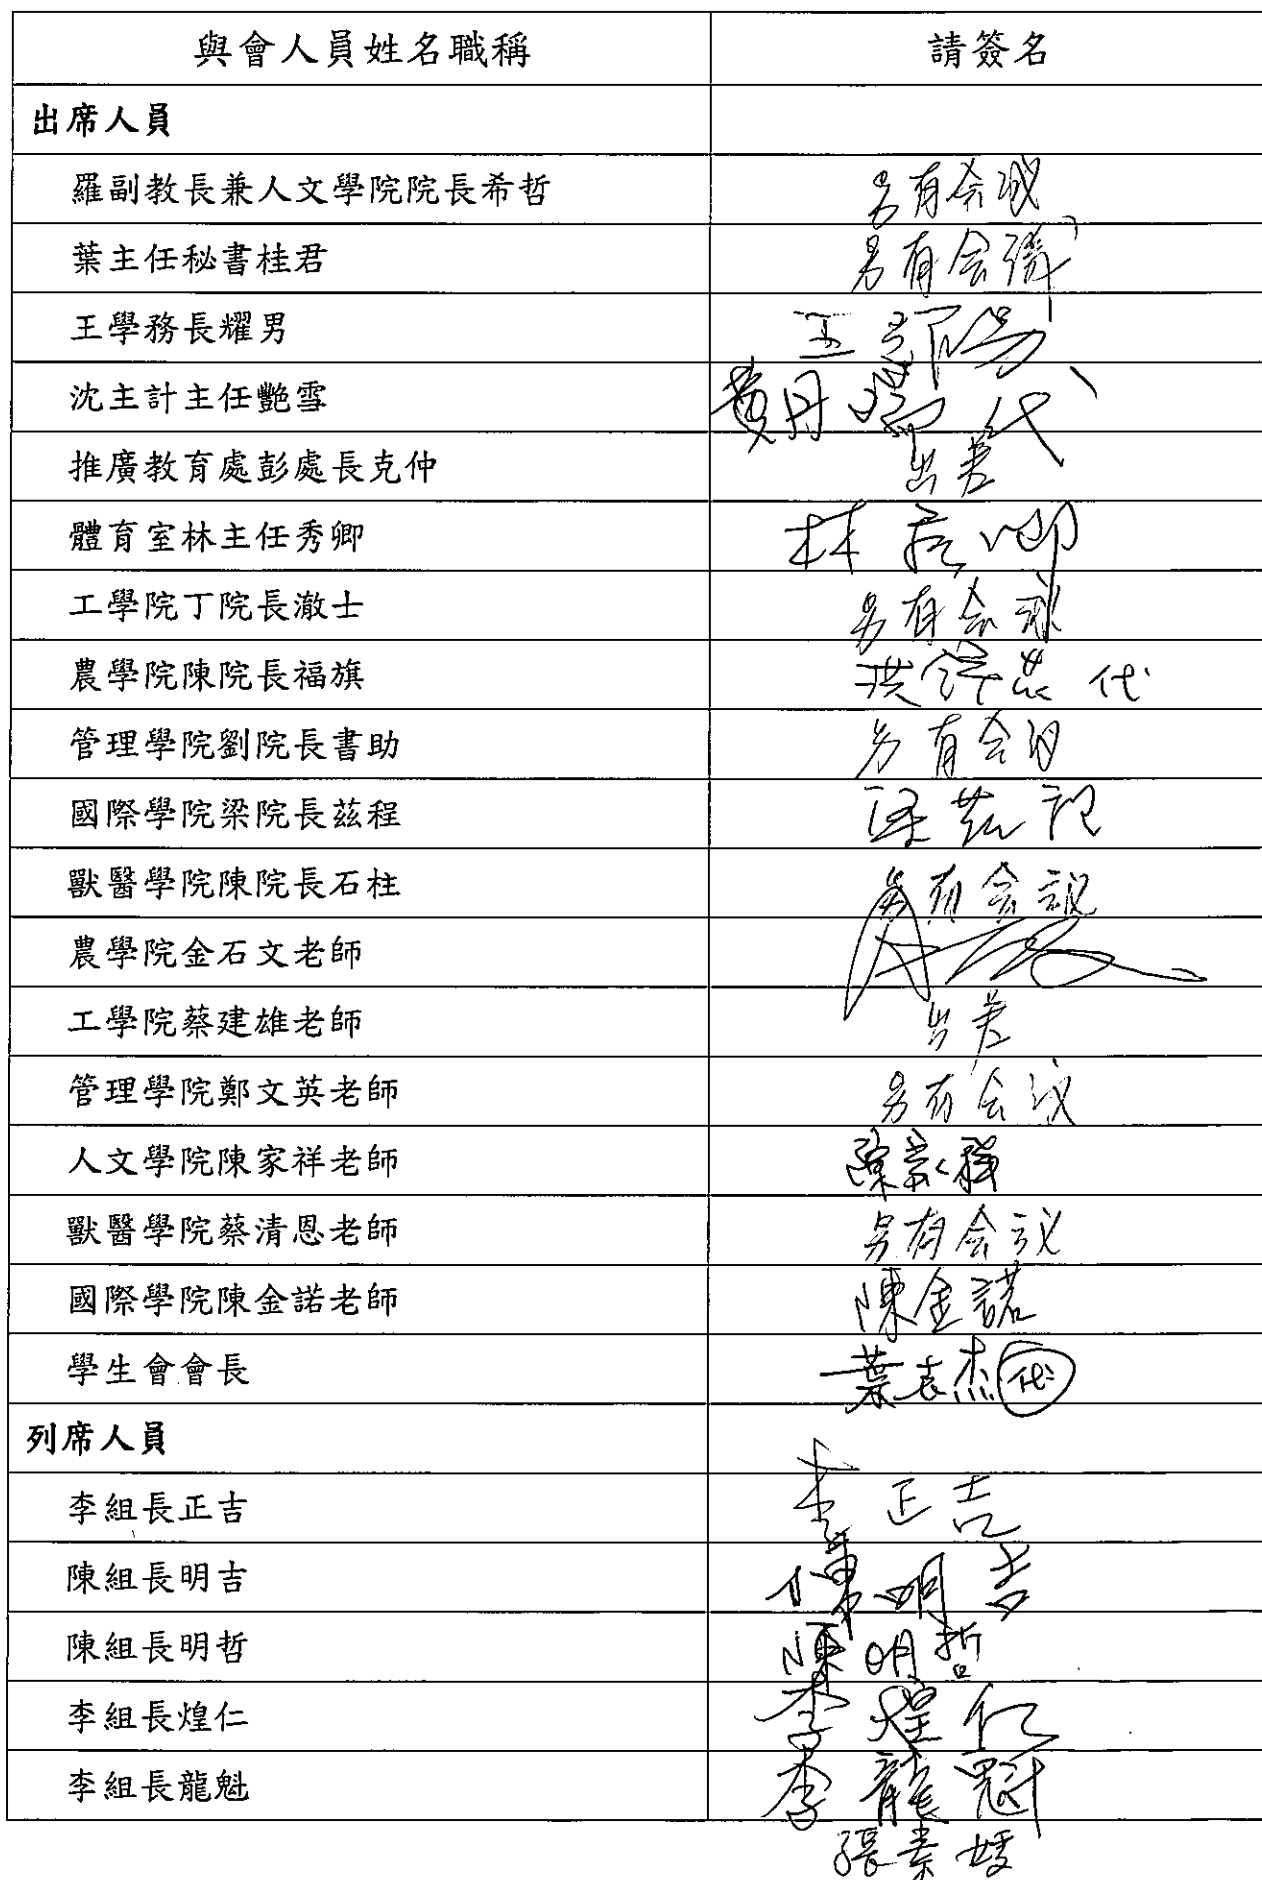 與會人員姓名職稱 請簽名
出席人員
羅副教長兼人文學院院長希哲 另有会议
葉主任秘書桂君 另有会議
王學務長耀男 王耀男
沈主計主任艷雪 黃月 代
推廣教育處彭處長克仲 出差
體育室林主任秀卿 林秀卿
工學院丁院長澈士 另有会议
農學院陳院長福旗 洪 代
管理學院劉院長書助 另有会
國際學院梁院長茲程 梁茲程
獸醫學院陳院長石柱 另有会議
農學院金石文老師
工學院蔡建雄老師 出差
管理學院鄭文英老師 另有会议
人文學院陳家祥老師 陳家祥
獸醫學院蔡清恩老師 另有会议
國際學院陳金諾老師 陳金諾
學生會會長 葉志杰代
列席人員
李組長正吉 李正吉
陳組長明吉 陳明吉
陳組長明哲 陳明哲
李組長煌仁 李煌仁
李組長龍魁 李龍魁
張素